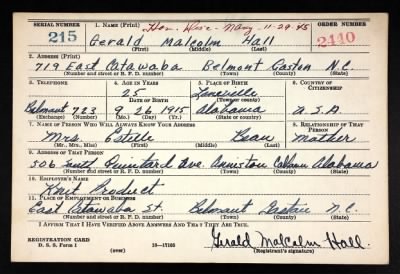 SERIAL NUMBER
1. NAME (Print)
Hon. Disc. Navy 11-29-45
ORDER NUMBER
215
Gerald Malcolm Hall
2440
(First) (Middle) (Last)
2. ADDRESS (Print)
719 East Catawba Belmont Gaston N.C.
(Number and street or R. F. D. number) (Town) (County) (State)
3. TELEPHONE
4. AGE IN YEARS
5. PLACE OF BIRTH
6. COUNTRY OF CITIZENSHIP
25
Lineville
DATE OF BIRTH
(Town or county)
Belmont 723
9 26 1915
Alabama
U.S.A.
(Exchange) (Number)
(Mo.) (Day) (Yr.)
(State or country)
7. NAME OF PERSON WHO WILL ALWAYS KNOW YOUR ADDRESS
8. RELATIONSHIP OF THAT PERSON
Mrs. Estelle Bean Mother
(Mr., Mrs., Miss) (First) (Middle) (Last)
9. ADDRESS OF THAT PERSON
506 South Quintard Ave. Anniston Calhoun Alabama
(Number and street or R. F. D. number) (Town) (County) (State)
10. EMPLOYER'S NAME
Knit Product
11. PLACE OF EMPLOYMENT OR BUSINESS
East Catawba St. Belmont Gaston N.C.
(Number and street or R. F. D. number) (Town) (County) (State)
I AFFIRM THAT I HAVE VERIFIED ABOVE ANSWERS AND THAT THEY ARE TRUE.
REGISTRATION CARD
D. S. S. Form 1
(over)
16—17105
Gerald Malcolm Hall
(Registrant's signature)